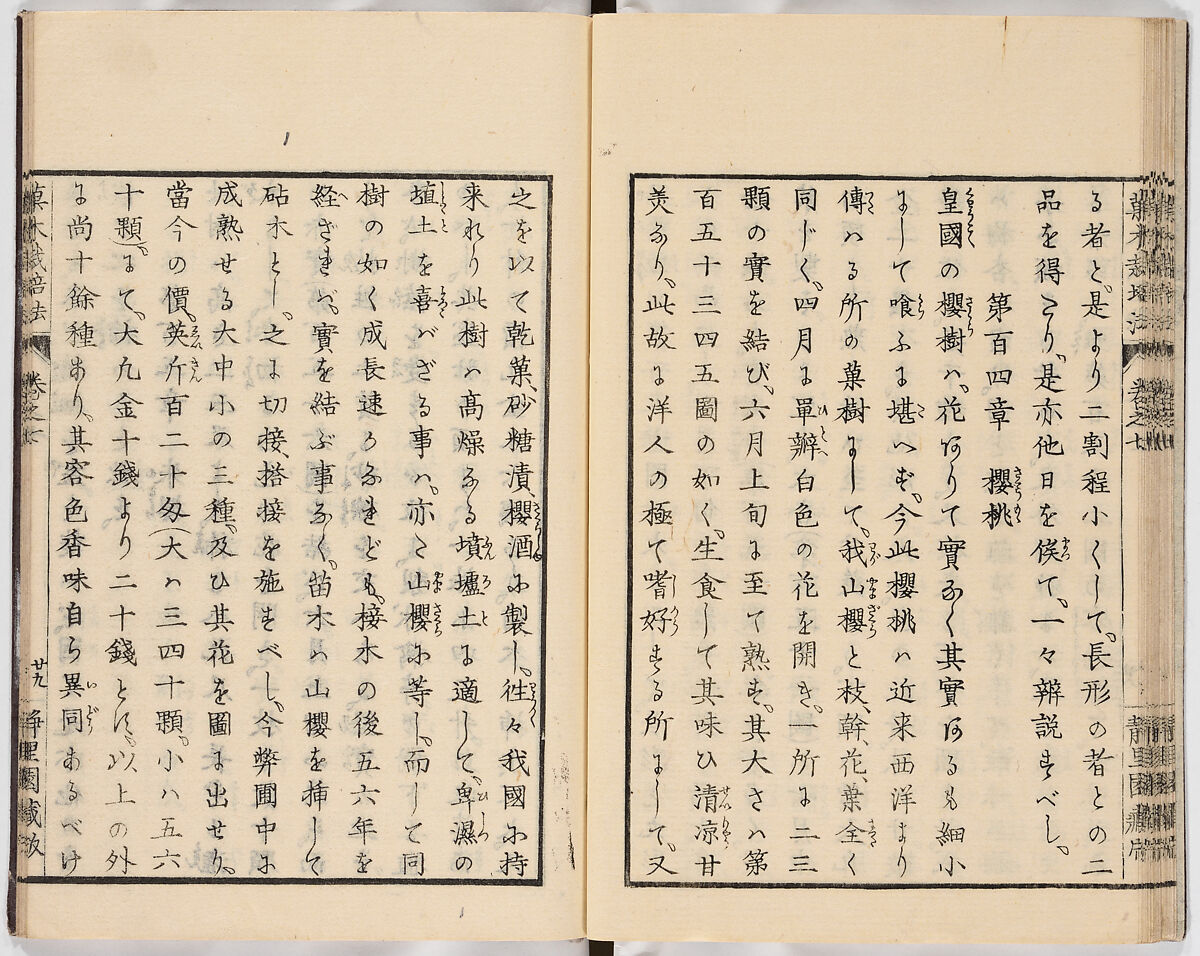 る者と、是より二割程小くして、長形の者との二
品を得たり、是亦他日を俟て、一々辨説すべし、
第百四章 櫻桃
皇國の櫻樹ハ、花ありて實なく其實あるも細小
にして喰ふに堪へず、今此櫻桃ハ近来西洋より
傳ハる所の菓樹にして、我山櫻と枝、幹、花、葉全く
同じく、四月に單瓣白色の花を開き、一所に二三
顆の實を結び、六月上旬に至て熟す、其大さハ第
百五十三四五圖の如く、生食して其味ひ清凉甘
美なり、此故に洋人の極て嗜好する所にして、又
之を以て乾菓、砂糖漬、櫻酒に製し、往々我國に持
来れり此樹ハ高燥なる墳壚土に適して、卑濕の
埴土を喜バざる事ハ、亦た山櫻に等し、而して同
樹の如く成長速かなれども、接木の後五六年を
経ざれバ、實を結ぶ事なく、苗木ハ山櫻を挿して
砧木とし、之に切接、搭接を施すべし、今弊圃中に
成熟せる大中小の三種、及ひ其花を圖に出せり、
當今の價、英斤百二十匁(大ハ三四十顆、小ハ五六
十顆)にて、大凡金十錢より二十錢とす、以上の外
に尚十餘種あり、其容色香味自ら異同あるべけ
菓木栽培法 卷之七 廿九 静里園藏版